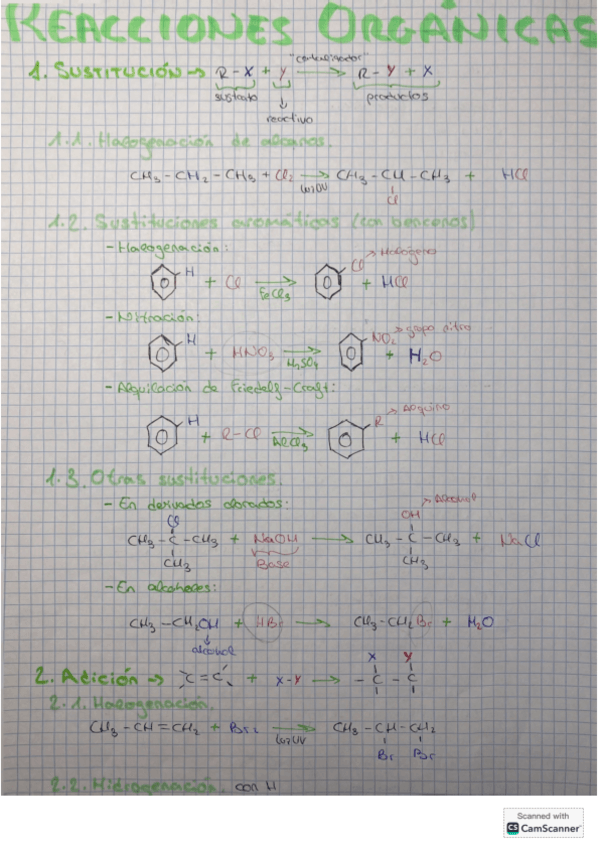 REACCIONES ORGÁNICAS
1. SUSTITUCIÓN → R-X + Y "catalizador" → R-Y + X
sustrato productos
reactivo
1.1. Halogenación de alcanos.
CH3-CH2-CH3 + Cl2 → luz UV CH3-CH-CH3 + HCl
Cl
1.2. Sustituciones aromáticas (con bencenos)
- Halogenación:
H + Cl → FeCl3 Cl → Halógeno + HCl
- Nitración:
H + HNO3 → H2SO4 NO2 → grupo nitro + H2O
- Alquilación de Friedelf-Craft:
H + R-Cl → AlCl3 R → Alquino + HCl
1.3. Otras sustituciones.
- En derivados clorados:
Cl OH → Alcohol
CH3-C-CH3 + NaOH → CH3-C-CH3 + NaCl
CH3 Base CH3
- En alcoholes:
CH3-CH2OH + HBr → CH3-CH2Br + H2O
alcohol
2. Adición → C=C + X-Y → -C-C-
X Y
2.1. Halogenación.
CH3-CH=CH2 + Br2 → luz UV CH3-CH-CH2
Br Br
2.2. Hidrogenación. con H
Scanned with
CS CamScanner